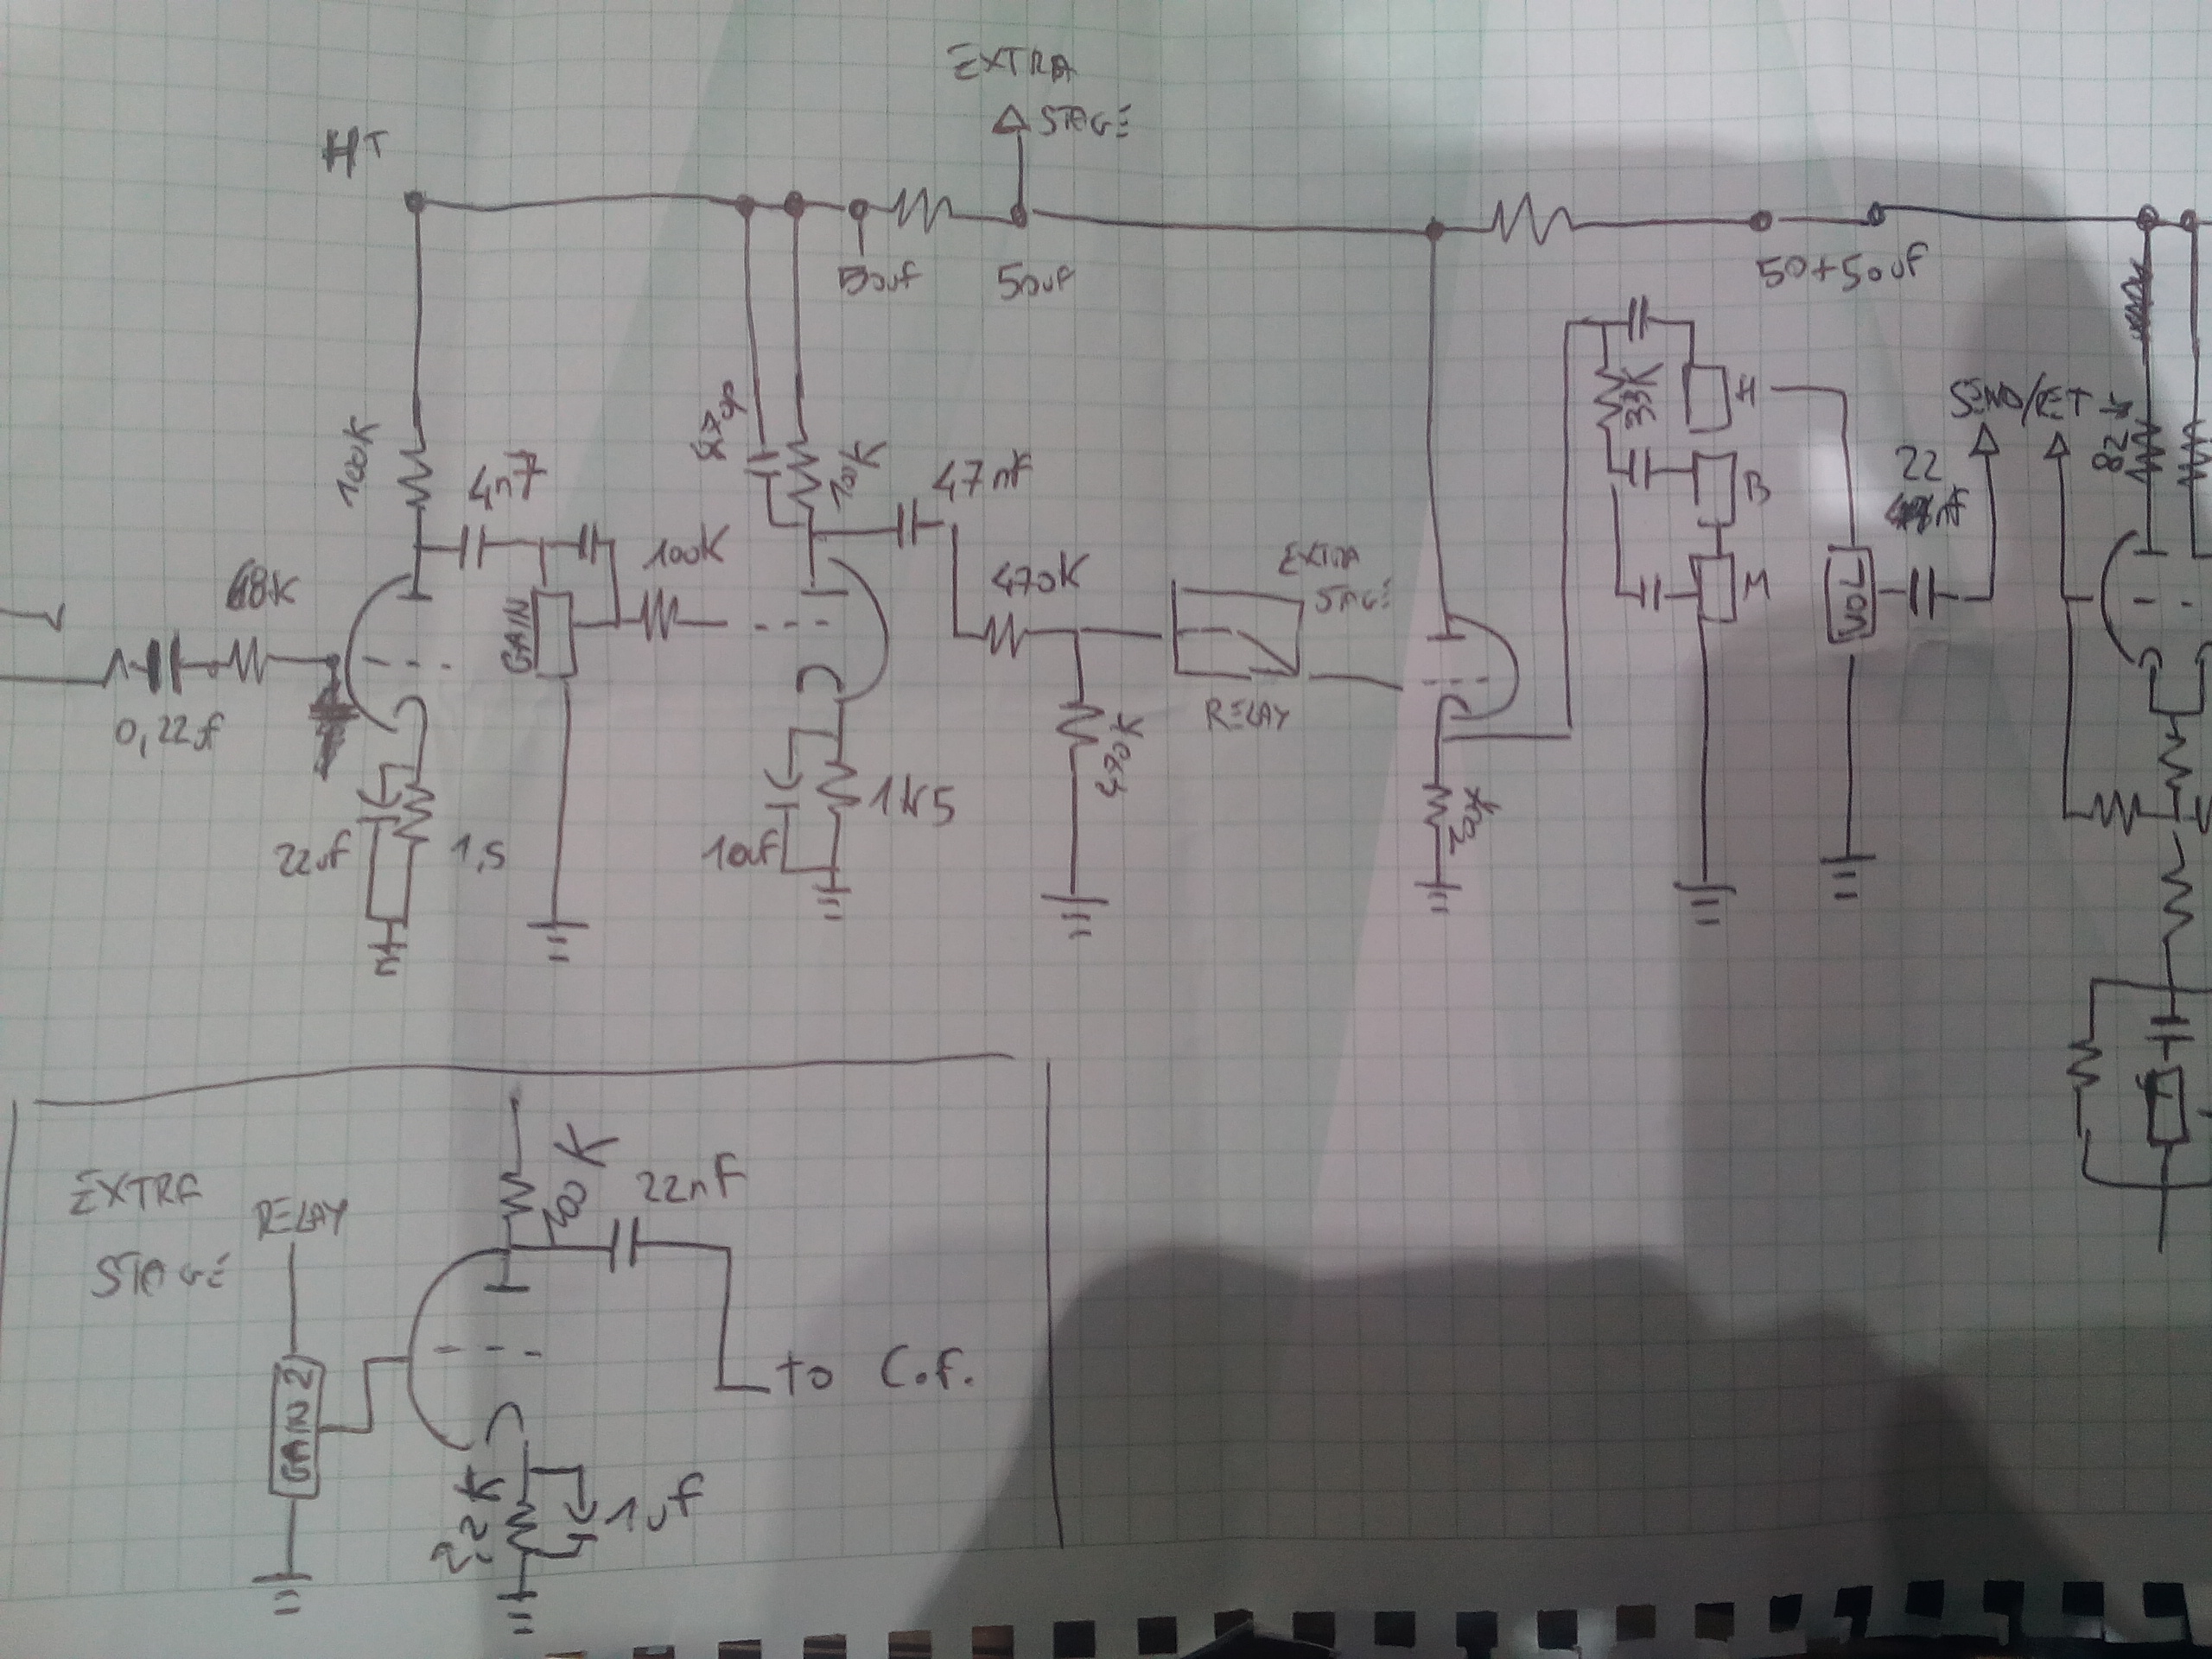 EXTRA
STAGE
HT
50uf
50uf
50+50uf
100K
4n7
470p
100K
47nf
33K
H
SEND/RET
82
22
nf
68K
GAIN
100K
470K
EXTRA
STAGE
B
M
VOL
0,22uf
RELAY
470K
22uf
1,5
10uf
1K5
EXTRA
STAGE
RELAY
100K
22nF
GAIN 2
to C.f.
2,2K
1uf